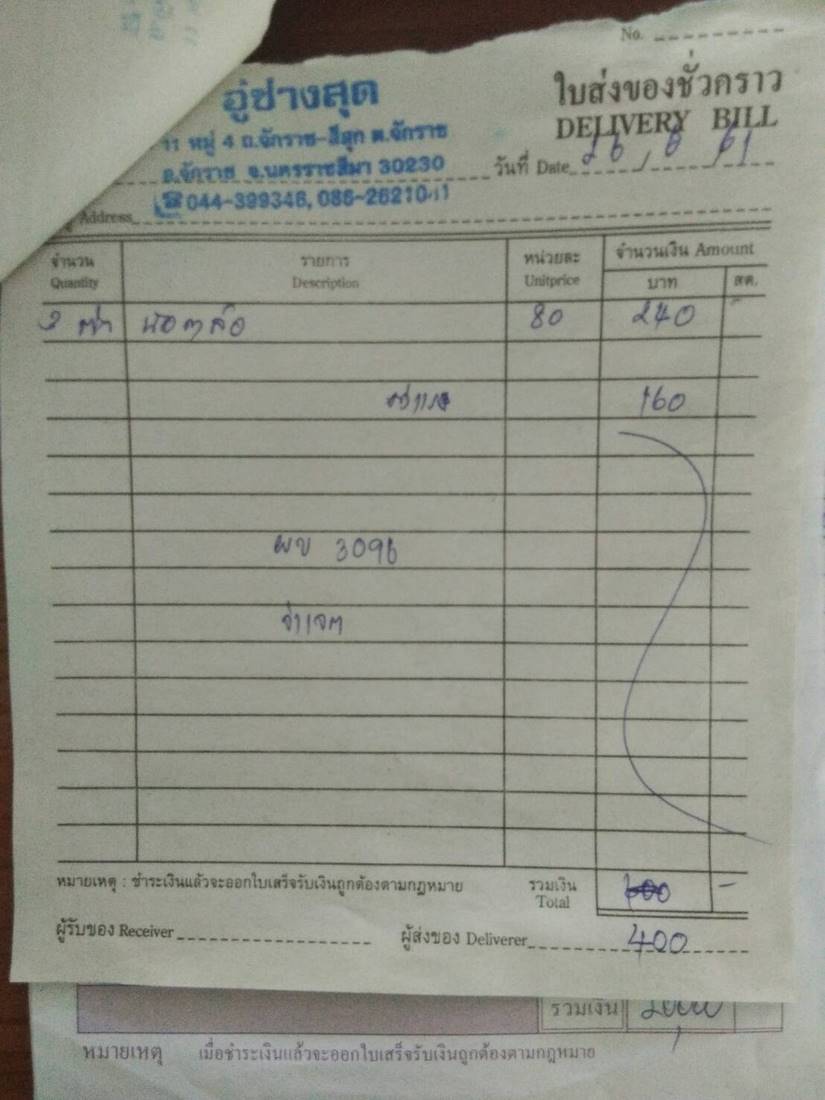 No.
อู่ช่างสุด
ใบส่งของชั่วคราว
DELIVERY BILL
11 หมู่ 4 ถ.จักราช-สีสุก ต.จักราช
อ.จักราช จ.นครราชสีมา 30230
วันที่ Date 26 / 6 / 61
044-399346, 086-26210
Address
จำนวน รายการ หน่วยละ จำนวนเงิน Amount
Quantity Description Unitprice บาท สต.
น๊อตล้อ 80 240 -
ค่าแรง 160
ผข 3096
หมายเหตุ : ชำระเงินแล้วจะออกใบเสร็จรับเงินถูกต้องตามกฎหมาย รวมเงิน
Total -
ผู้รับของ Receiver ผู้ส่งของ Deliverer 400
รวมเงิน 2000
หมายเหตุ เมื่อชำระเงินแล้วจะออกใบเสร็จรับเงินถูกต้องตามกฎหมาย